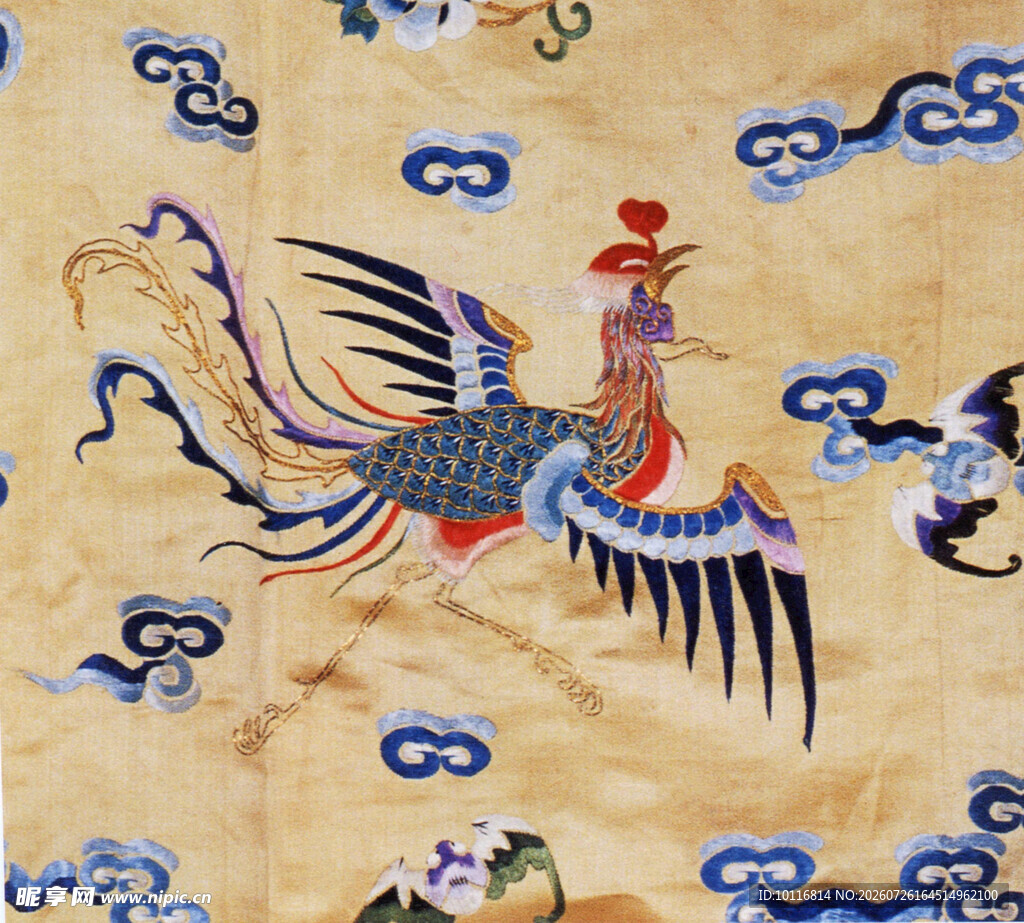 昵享网 www.nipic.cn
ID:10116814 NO:20260726164514962100